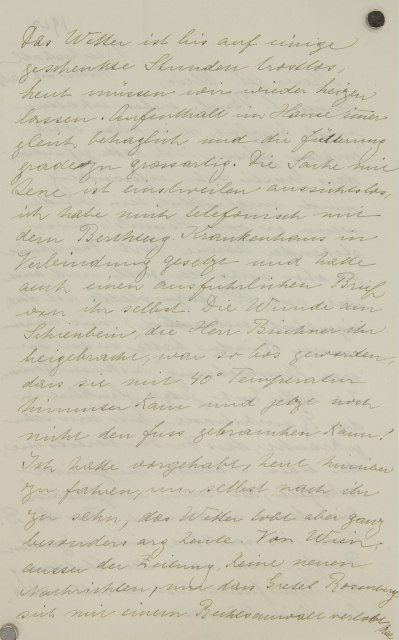 Das Wetter ist bis auf einige
geschenkte Stunden trostlos,
heut müssen wir wieder heizen
lassen. Aufenthalt im Hause immer
gleich behaglich und die Fütterung
gradezu grossartig. Die Sache mit
Lene ist einstweilen aussichtslos,
ich habe mich telefonisch mit
dem Berchtesg. Krankenhaus in
Verbindung gesetzt und hatte
auch einen ausführlichen Brief
von ihr selbst. Die Wunde am
Schienbein, die Herr ihr
beigebracht, war so bös geworden,
dass sie mit 40° Temperatur
hinunter kam und jetzt noch
nicht den Fuss gebrauchen kann!
Ich hatte vorgehabt, heut hinüber
zu fahren, um selbst nach ihr
zu sehn, das Wetter tobt aber ganz
besonders arg heute. Von Wien,
ausser der Zeitung, keine neuen
Nachrichten, nur dass Gretel Rosenberg
sich mit einem Rechtsanwalt verlobt